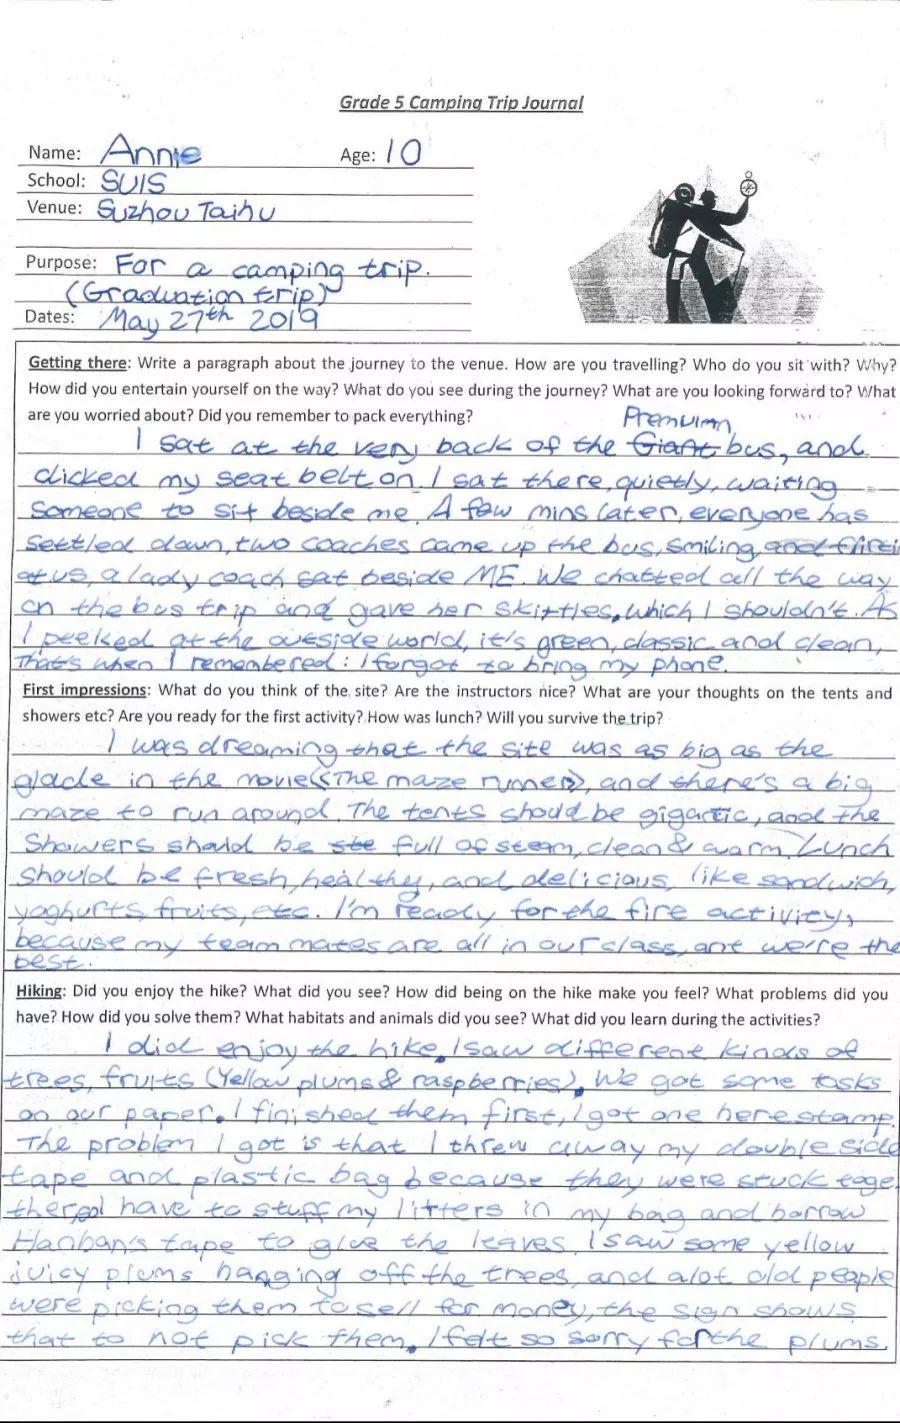 Grade 5 Camping Trip Journal
Name: Annie Age: 10
School: SUIS
Venue: Suzhou Taihu
Purpose: For a camping trip.
(Graduation trip)
Dates: May 27th 2019
Getting there: Write a paragraph about the journey to the venue. How are you travelling? Who do you sit with? Why?
How did you entertain yourself on the way? What do you see during the journey? What are you looking forward to? What
are you worried about? Did you remember to pack everything?
Premuimn
I sat at the very back of the Giant bus, and
clicked my seat belt on. I sat there, quietly, waiting
someone to sit beside me. A few mins later, everyone has
settled down, two coaches came up the bus, smiling, and
at us, a lady coach sat beside ME. We chatted all the way
on the bus trip and gave her skittles, which I shouldn't. As
I peeked at the outside world, it's green, classic and clean,
That's when I remembered: I forgot to bring my phone.
First impressions: What do you think of the site? Are the instructors nice? What are your thoughts on the tents and
showers etc? Are you ready for the first activity? How was lunch? Will you survive the trip?
I was dreaming that the site was as big as the
glade in the movie《The maze runner》, and there's a big
maze to run around. The tents should be gigactic, and the
Showers should be ste full of steam, clean & warm. Lunch
should be fresh, healthy, and delicious, like sandwich,
yoghurts, fruits, etc. I'm ready for the fire activity,
because my team mates are all in our class, ant we're the
best.
Hiking: Did you enjoy the hike? What did you see? How did being on the hike make you feel? What problems did you
have? How did you solve them? What habitats and animals did you see? What did you learn during the activities?
I did enjoy the hike. I saw different kinds of
trees, fruits (Yellow plums & raspberries). We got some tasks
on our paper. I finished them first, I got one here stamp.
The problem I got is that I threw away my double side
tape and plastic bag because they were stuck toge
ther, I have to stuff my litters in my bag and borrow
Hanhan's tape to glue the leaves. I saw some yellow
juicy plums hanging off the trees, and alot old people
were picking them to sell for money, the sign shows
that to not pick them. I felt so sorry for the plums.